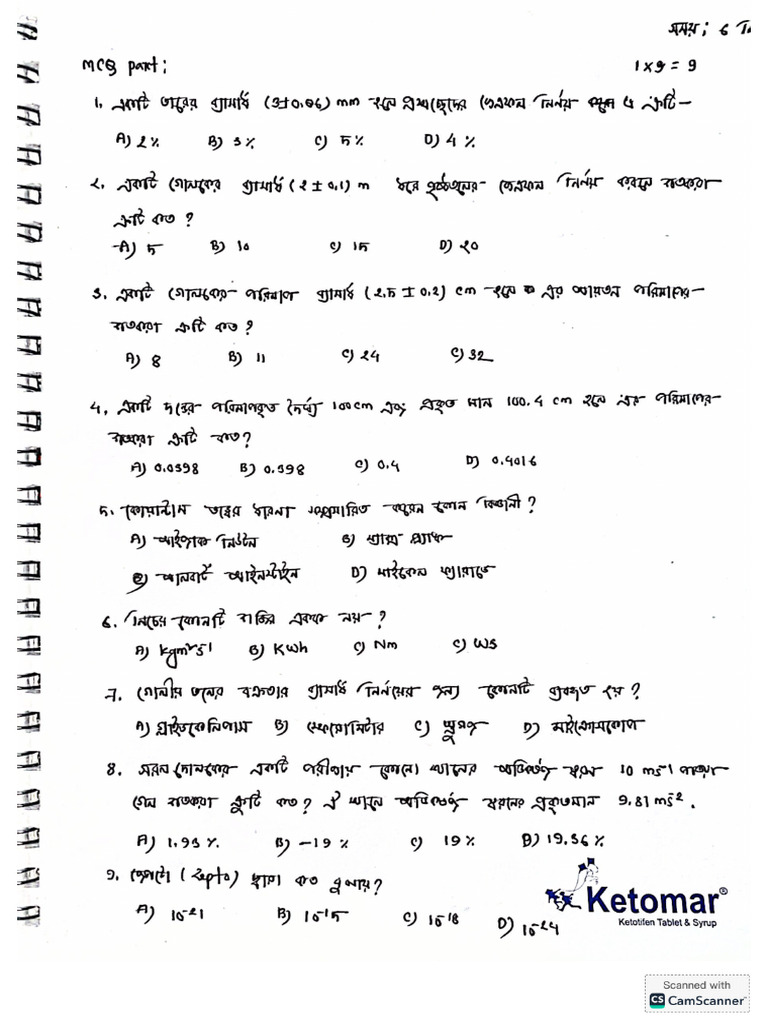 সময়: 6
MCQ part:
1×9 = 9
1. একটি তারের ব্যাসার্ধ (3±0.06) mm হলে প্রস্থচ্ছেদের ক্ষেত্রফল নির্ণয় এ ত্রুটি—
A) 2% B) 3% C) 5% D) 4%
2. একটি গোলকের ব্যাসার্ধ (2 ± 0.1) m হলে পৃষ্ঠতলের ক্ষেত্রফল নির্ণয় করলে শতকরা
ত্রুটি কত?
A) 5 B) 10 C) 15 D) 20
3. একটি গোলকের পরিমাপ ব্যাসার্ধ (2.5 ± 0.2) cm হলে এর আয়তন পরিমাপের
শতকরা ত্রুটি কত?
A) 8 B) 11 C) 24 C) 32
4. একটি দন্ডের পরিমাপকৃত দৈর্ঘ্য 100cm এবং প্রকৃত মান 100.4 cm হলে এর পরিমাপের
শতকরা ত্রুটি কত?
A) 0.0398 B) 0.398 C) 0.4 D) 0.4016
5. কোয়ান্টাম তত্ত্বের ধারনা সম্প্রসারিত করেন কোন বিজ্ঞানী?
A) আইজ্যাক নিউটন B) ম্যাক্স প্ল্যাঙ্ক
C) আলবার্ট আইনস্টাইন D) মাইকেল ফ্যারাডে
6. নিচের কোনটি শক্তির একক নয়?
A) kgm²s⁻¹ B) Kwh C) Nm C) WS
7. গোলীয় তলের বক্রতার ব্যাসার্ধ নির্ণয়ের জন্য কোনটি ব্যবহৃত হয়?
A) স্লাইডক্যালিপাস B) স্ফেরোমিটার C) স্ক্রুগজ D) মাইক্রোস্কোপ
8. সরল দোলকের একটি পরীক্ষায় কোনো স্থানের অভিকর্ষজ ত্বরণ 10 ms⁻¹ পাওয়া
গেল শতকরা ত্রুটি কত? ঐ স্থানে অভিকর্ষজ ত্বরনের প্রকৃতমান 9.81 ms⁻².
A) 1.93%. B) -19% C) 19% D) 19.36%
9. জেপ্টো (Zepto) দ্বারা কত বুঝায়?
A) 10⁻²¹ B) 10⁻¹⁵ C) 10⁻¹⁸ D) 10⁻²⁴
Ketomar®
Ketotifen Tablet & Syrup
Scanned with
CS CamScanner